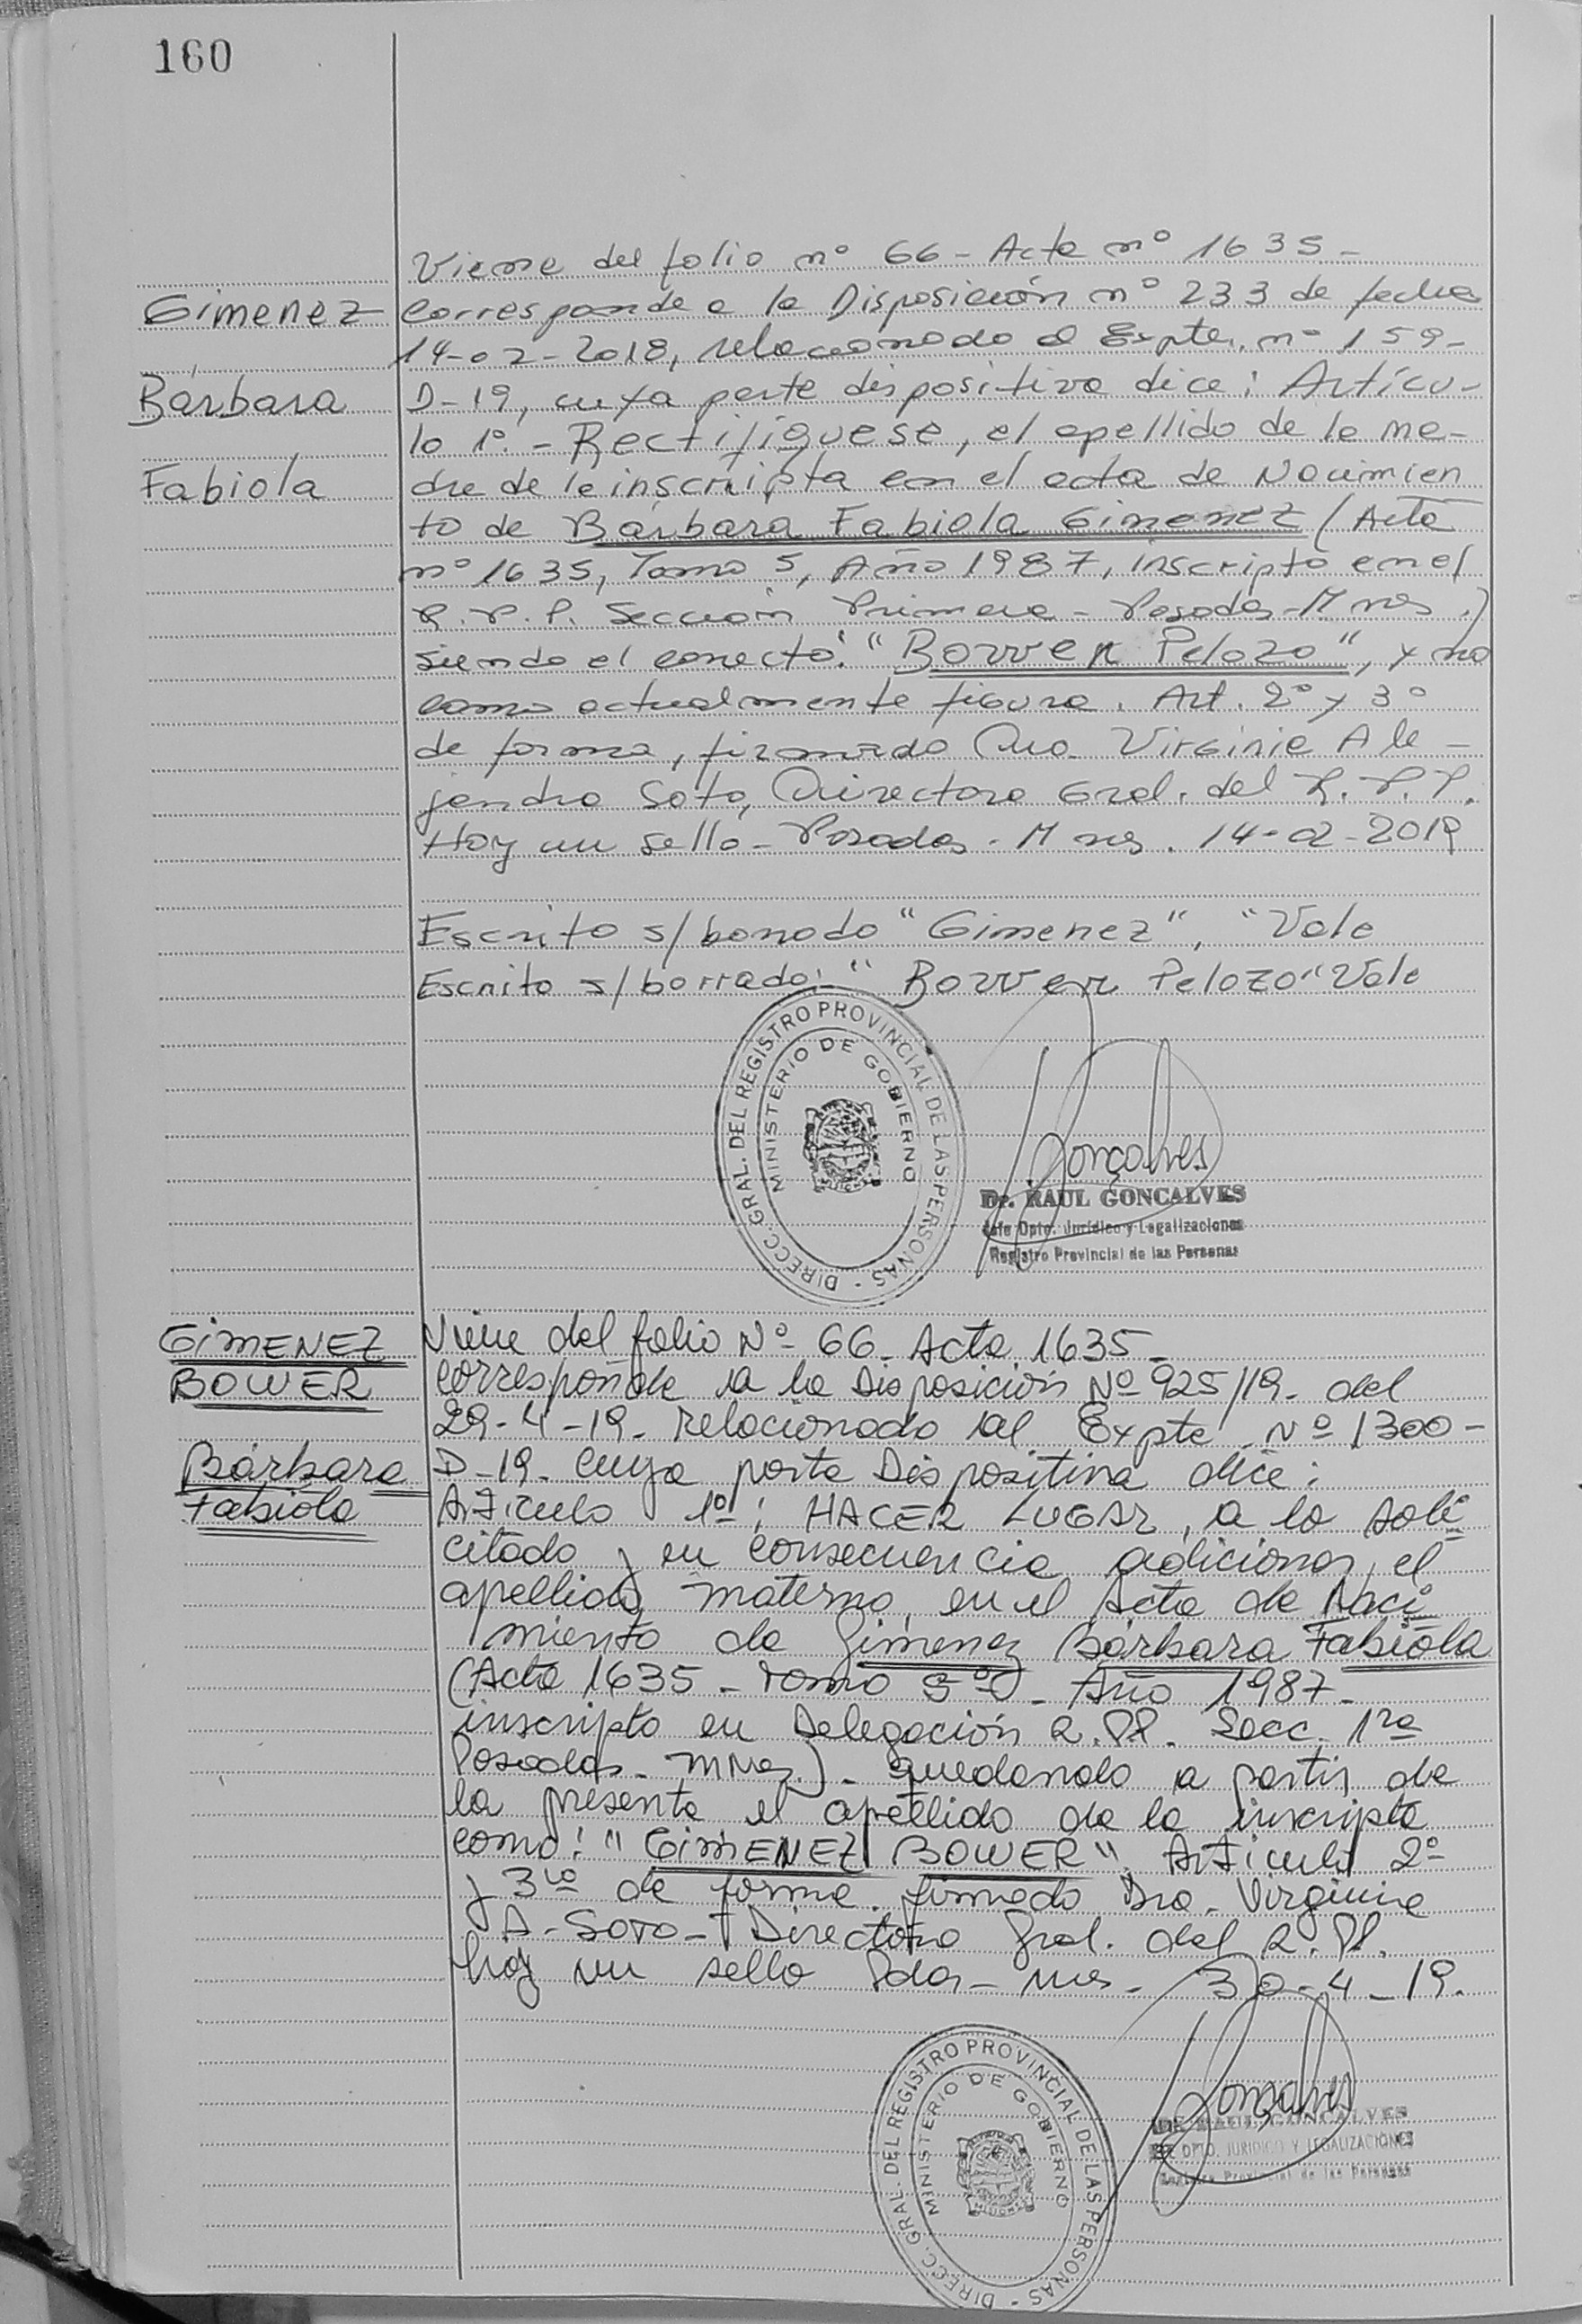 160
Viene del folio nº 66 - Acta nº 1635 -
Gimenez
Corresponde a la Disposición nº 233 de fecha
14-02-2018, relacionado al Expte. nº 159-
Bárbara
D-19, cuya parte dispositiva dice: Artícu-
lo 1º. - Rectifiquese, el apellido de la ma-
Fabiola
dre de la inscripta en el acta de Nacimien
to de Bárbara Fabiola Gimenez (Acta
nº 1635, Tomo 5, Año 1987, inscripto en el
R.P.P. Sección Primera - Posadas - Mnes.)
siendo el correcto: "Bower Pelozo", y no
como actualmente figura. Art. 2º y 3º
de forma, firmado Dra. Virginia Ale-
jandra Soto, Directora Gral. del R.P.P.
Hay un sello - Posadas - Mnes. 14-02-2019
Escrito s/borrado "Gimenez", "Vale
Escrito s/borrado: "Bower Pelozo" Vale
DIRECC. GRAL. DEL REGISTRO PROVINCIAL DE LAS PERSONAS -
MINISTERIO DE GOBIERNO
Gonçalves
Dr. RAUL GONCALVES
Jefe Dpto. Jurídico y Legalizaciones
Registro Provincial de las Personas
GIMENEZ
BOWER
Bárbara
Fabiola
Viene del folio Nº 66 - Acta 1635 -
Corresponde a la Disposición Nº 925/19 - del
29-4-19 - relacionado al Expte. Nº 1300 -
D-19. Cuya parte Dispositiva dice:
Articulo 1º: HACER LUGAR, a lo soli
citado y en consecuencia adicionar el
apellido materno, en el Acta de Naci
miento de Gimenez Bárbara Fabiola
(Acta 1635 - Tomo 5º - Año 1987 -
inscripto en Delegación R.PP. Secc. 1ra
Posadas - Mnes.) - quedando a partir de
la presente el apellido de la inscripta
como: "GIMENEZ BOWER". Articulo 2º
y 3ro de forma. firmado Dra. Virginia
A. Soto - Directora Gral. del R.PP.
hay un sello Pdas - Mnes - 30-4-19.
DIRECC. GRAL. DEL REGISTRO PROVINCIAL DE LAS PERSONAS -
MINISTERIO DE GOBIERNO
Gonçalves
DR. RAUL GONCALVES
JEFE DPTO. JURIDICO Y LEGALIZACIONES
Registro Provincial de las Personas